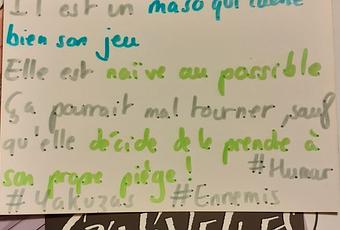 Il est un maso qui cache
bien son jeu
Elle est naïve au possible
Ça pourrait mal tourner, sauf
qu'elle décide de le prendre à
son propre piège ! #Humar
# Yakuzas #Ennemis